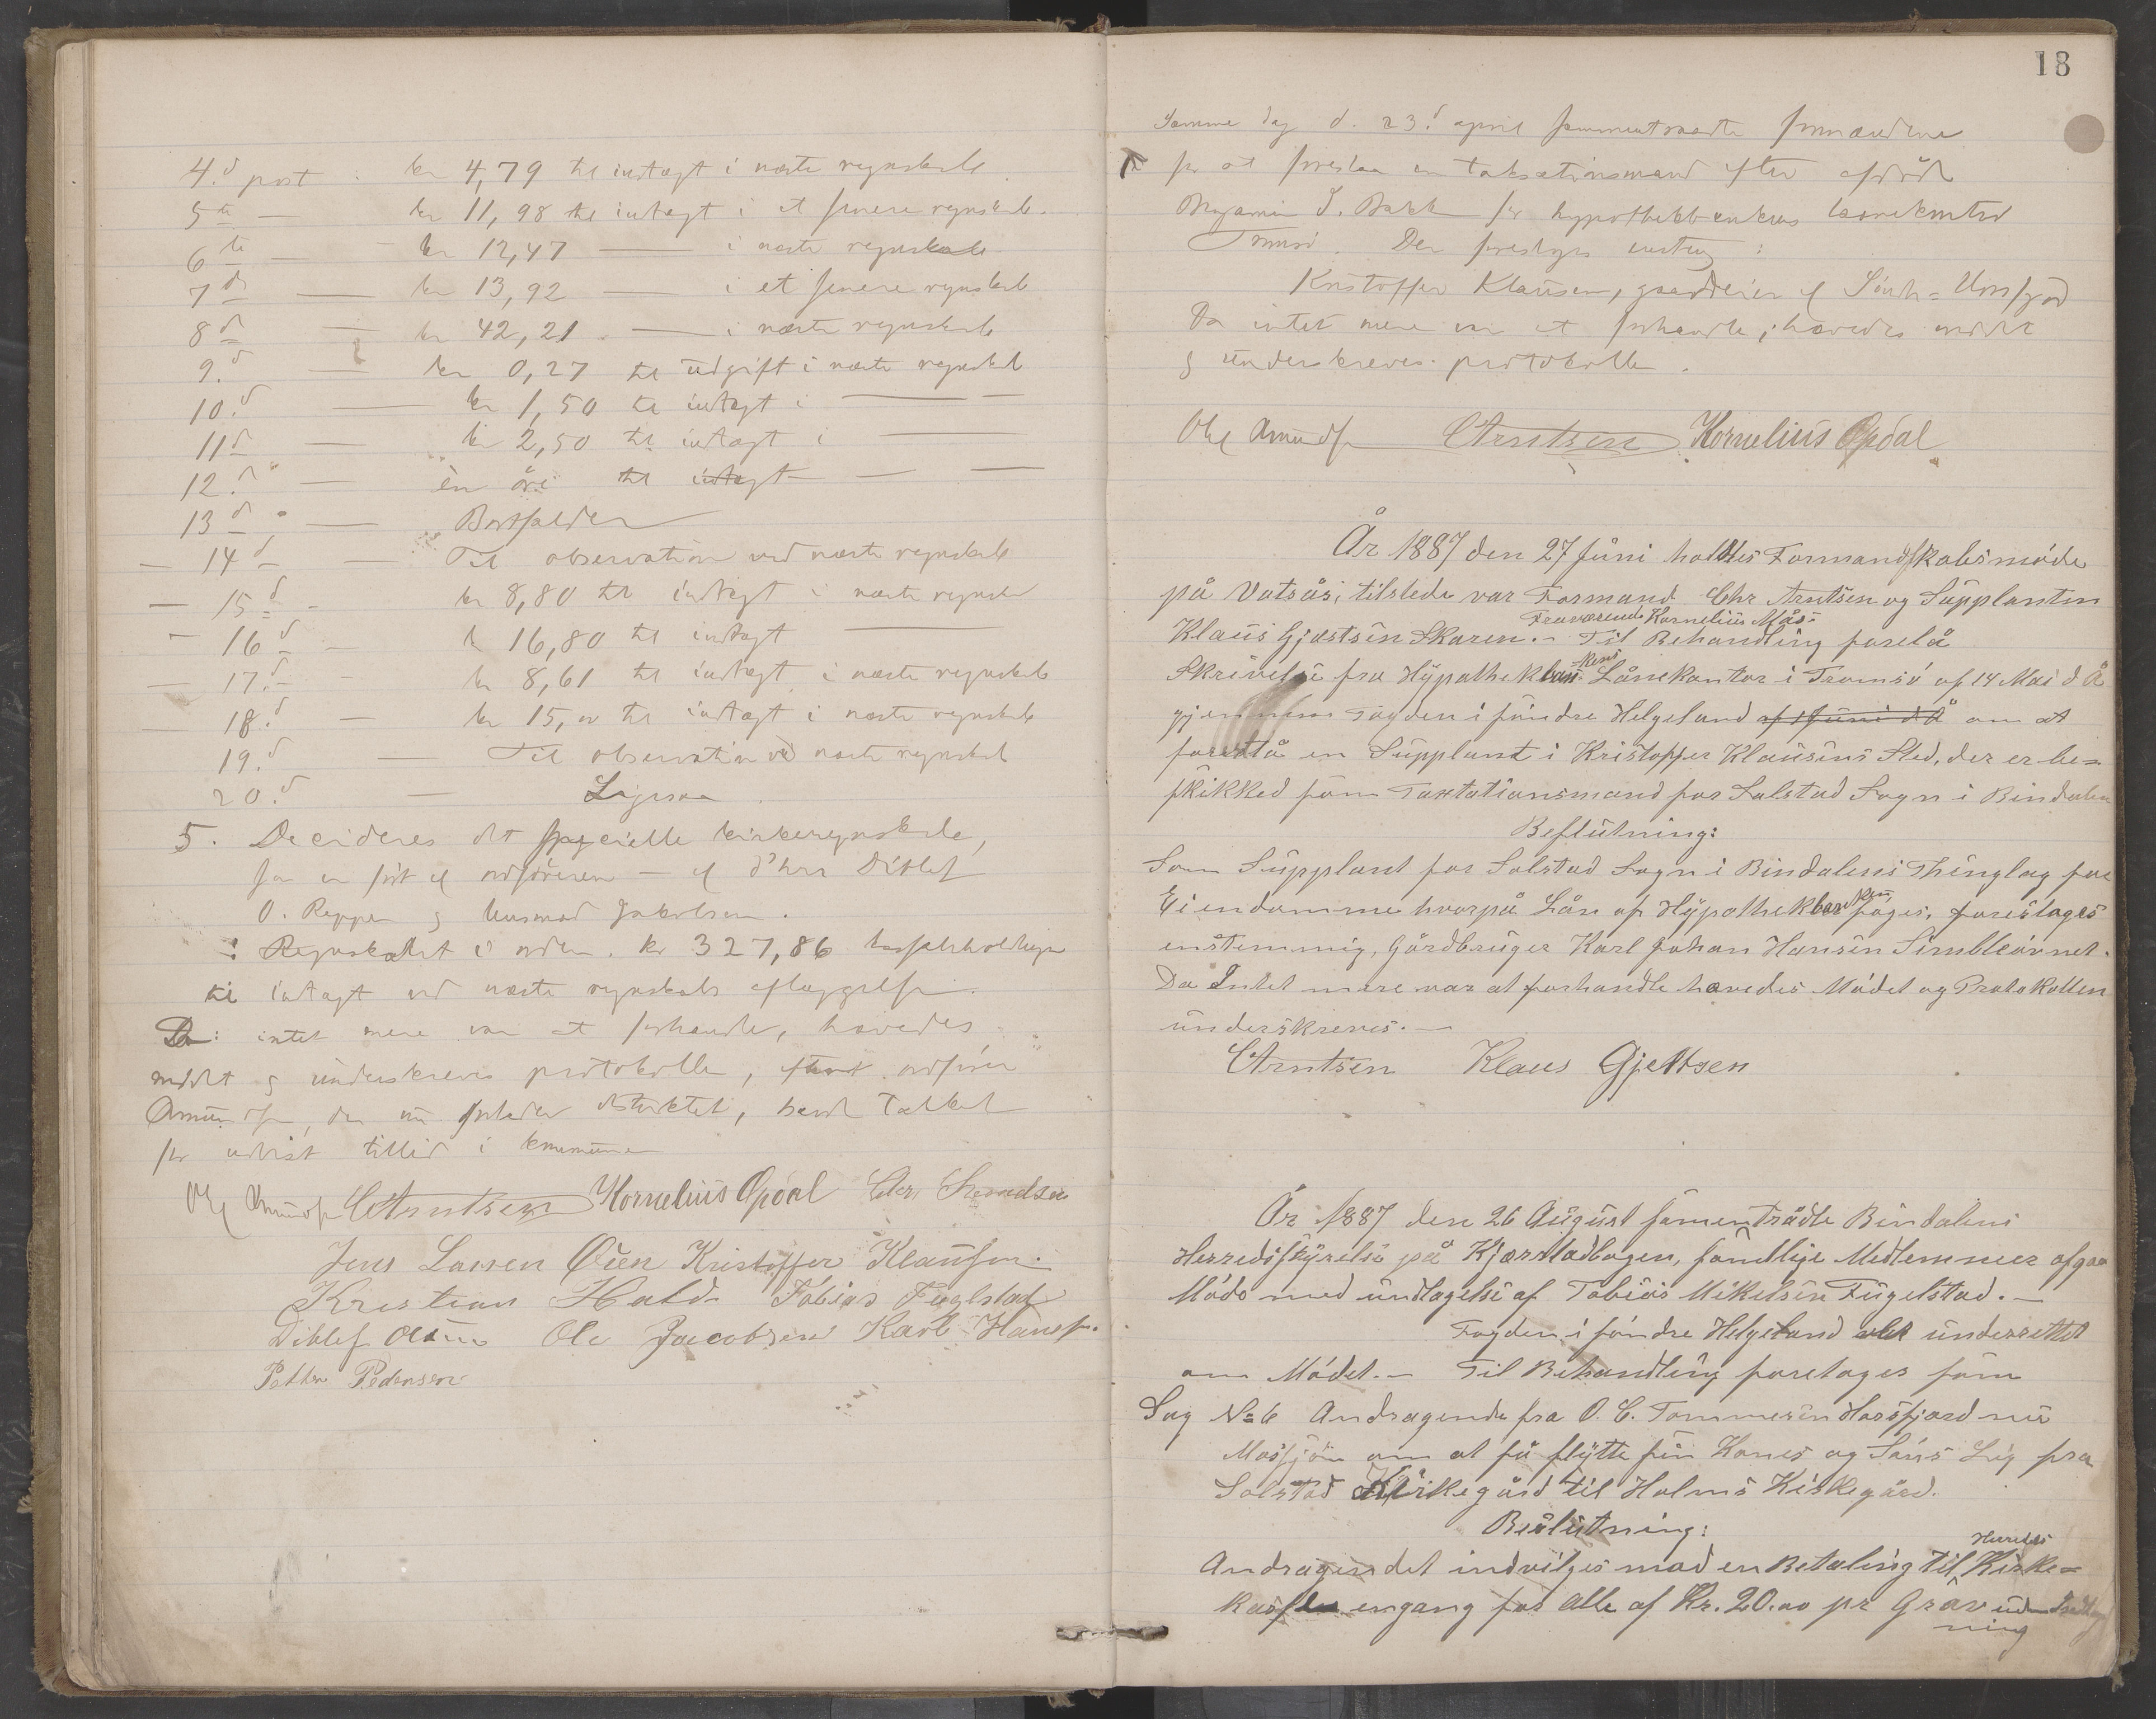 4.d post : kr 4,79 til indtægt i næste regnskab.
5te — kr 11,98 til indtægt i et senere regnskab.
6te — kr 12,47 — i næste regnskab
7d — kr 13,92 — i et senere regnskab
8d — kr 42,21 — i næste regnskab
9.d — kr 0,27 til udgift i næste regnskab
10.d — kr 1,50 til indtægt i — —
11d — kr 2,50 til indtægt i —
12.d — èn öre til indtægt — —
13d — Bortfalder
— 14d — Til observation ved næste regnskab
— 15d — kr 8,80 til indtægt i næste regnskab
— 16d — kr 16,80 til indtægt —
— 17.d — kr 8,61 til indtægt i næste regnskab
18.d — kr 15,00 til indtægt i næste regnskab
19.d — Til observation ved næste regnskab
20.d — Ligesaa
5. Decideres det specielle kirkeregnskab,
som er ført af ordføreren — af d'hrr Ditlef
O. Reppen og husmand Jakobsen.
: Regnskabet i orden. kr 327,86
til indtægt ved næste regnskabs aflæggelse.
Da intet mere var at forhandle, hævedes
mødet og underskreves protokollen, ordfører
Amundsen, der nu forlader distriktet, takket
for udvist tillid i kommunen
Ole Amundsen CArntsen Kornelius Opdal Chr. Svendsen
Jens Larsen Øien Kristoffer Klausen.
Kristian Hald Tobias Fuglstad
Ditlef Olsen Ole Jacobsen Karl Hansen.
Petter Pedersen
18
Samme dag d. 23d april sammentraadte formændene
for at foreslaa en taksationsmand efter afdøde
Benjamin J. Bakken for hypothekbankens laanekontor
Tromsø. Der foresloges enstemmig:
Kristoffer Klausen, gaardeier af Sørh=Horsfjord
Da intet mere var at forhandle, hævedes mødet
og underskreves protokollen.
Ole Amundsen CArntsen Kornelius Opdal
År 1887 den 27 Juni holdtes Formandskabsmöde
på Vatsås, tilstede var Formand Chr Arntsen og Supplanten
Klaus Gjertsen Skaren.- Fraværende Kornelius Mås- Til Behandling forelå
Skrivelse fra Hypothekbankens Lånekontor i Tromsö af 14 Mai d Å
gjennem Fogden i söndre Helgeland af 1 Juni d Å om at
foreslå en Supplant i Kristoffer Klausens Sted, der er be=
skikked som Taxtationsmand for Solstad Sogn i Bindalen
Beslutning:
Som Supplant for Solstad Sogn i Bindalens Thinglag for
Eiendomme hvorpå Lån af Hypothekbanken söges, foreslages
enstemmig, Gårdbruger Karl Johan Hansen Simbleövnet.
Da Intet mere var at forhandle hævedes Mödet og Protokollen
underskreves.—
CArntsen Klaus Gjertsen
År 1887 den 26 August samentrådte Bindalens
Herredsstyrelse på Kjærstadbogen, samtlige Medlemmer afgav
Möde med undtagelse af Tobias Mikelsen Fugelstad.—
Fogden i söndre Helgeland var underrettet
om Mödet.— Til Behandling foretages som
Sag No 6 Andragende fra O. C. Tommesen Horsfjord nu
Mosjöen om at få flytte sin Kones og Söns Lig fra
Solstad Kirkegård til Holms Kirkegård.
Beslutning:
Andragendet indvilges mod en Betaling til Herreds Kirke=
kassen engang for alle af Kr. 20.00 pr Grav uden